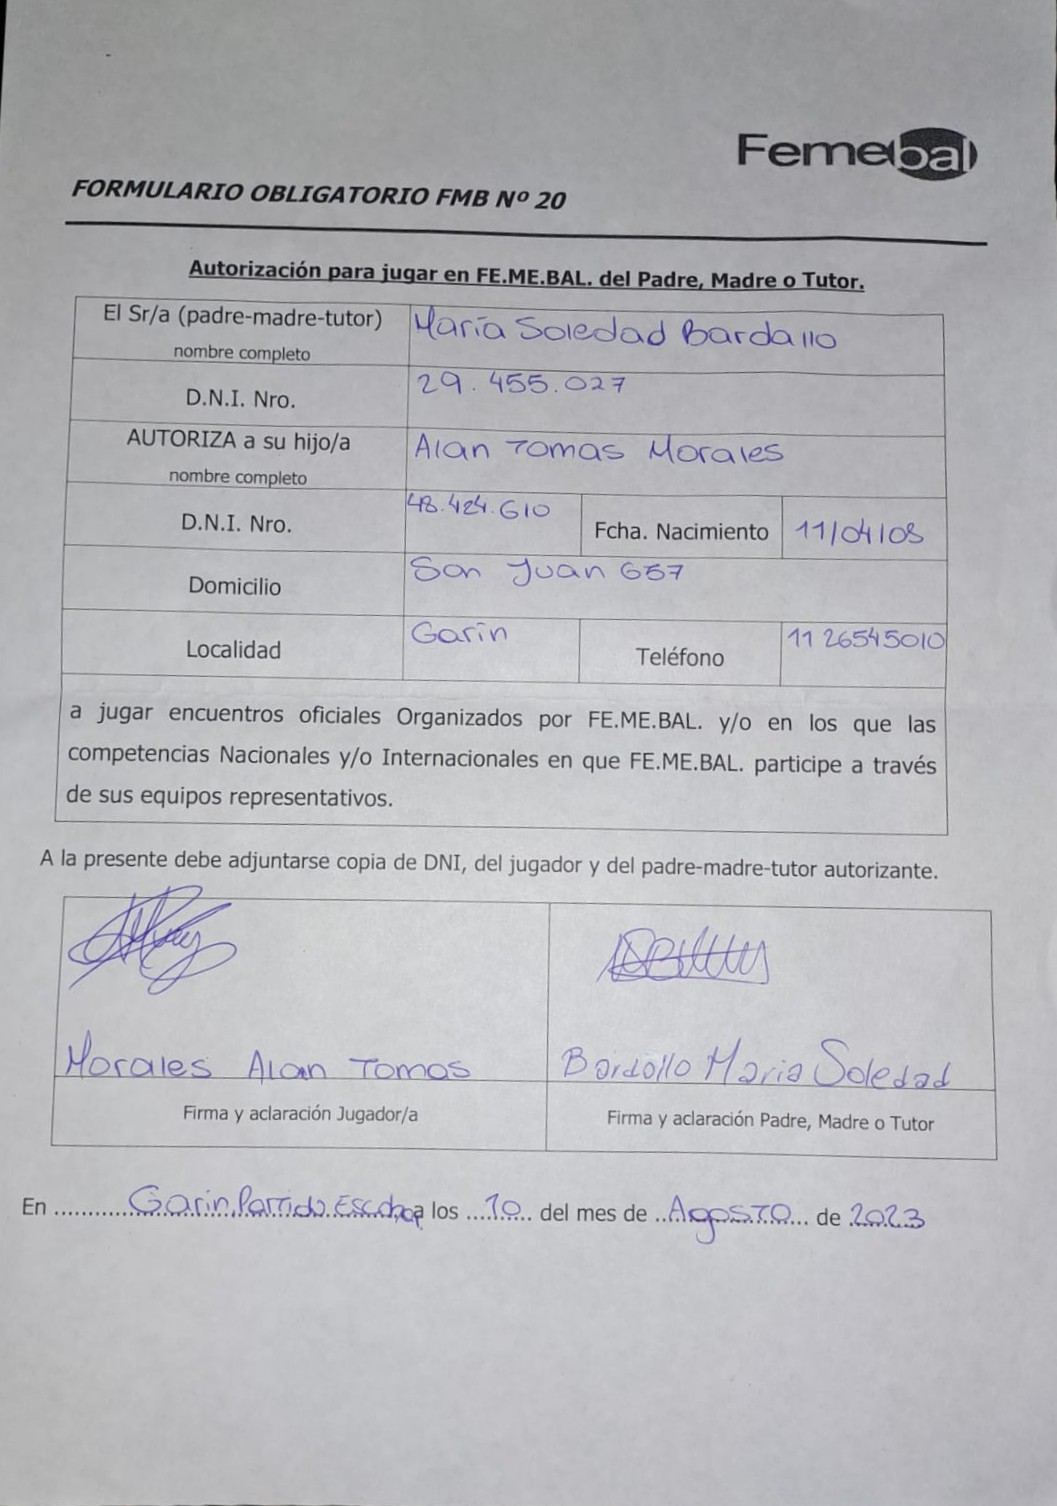 Femebal
FORMULARIO OBLIGATORIO FMB Nº 20
Autorización para jugar en FE.ME.BAL. del Padre, Madre o Tutor.
El Sr/a (padre-madre-tutor) María Soledad Bardallo
nombre completo
D.N.I. Nro. 29.455.027
AUTORIZA a su hijo/a Alan Tomas Morales
nombre completo
D.N.I. Nro. 48.424.610 Fcha. Nacimiento 11/04/08
Domicilio San Juan 657
Localidad Garín Teléfono 11 26545010
a jugar encuentros oficiales Organizados por FE.ME.BAL. y/o en los que las
competencias Nacionales y/o Internacionales en que FE.ME.BAL. participe a través
de sus equipos representativos.
A la presente debe adjuntarse copia de DNI, del jugador y del padre-madre-tutor autorizante.
Morales Alan Tomas Bardallo Maria Soledad
Firma y aclaración Jugador/a Firma y aclaración Padre, Madre o Tutor
En Garin, Partido Escobar a los 10 del mes de Agosto de 2023